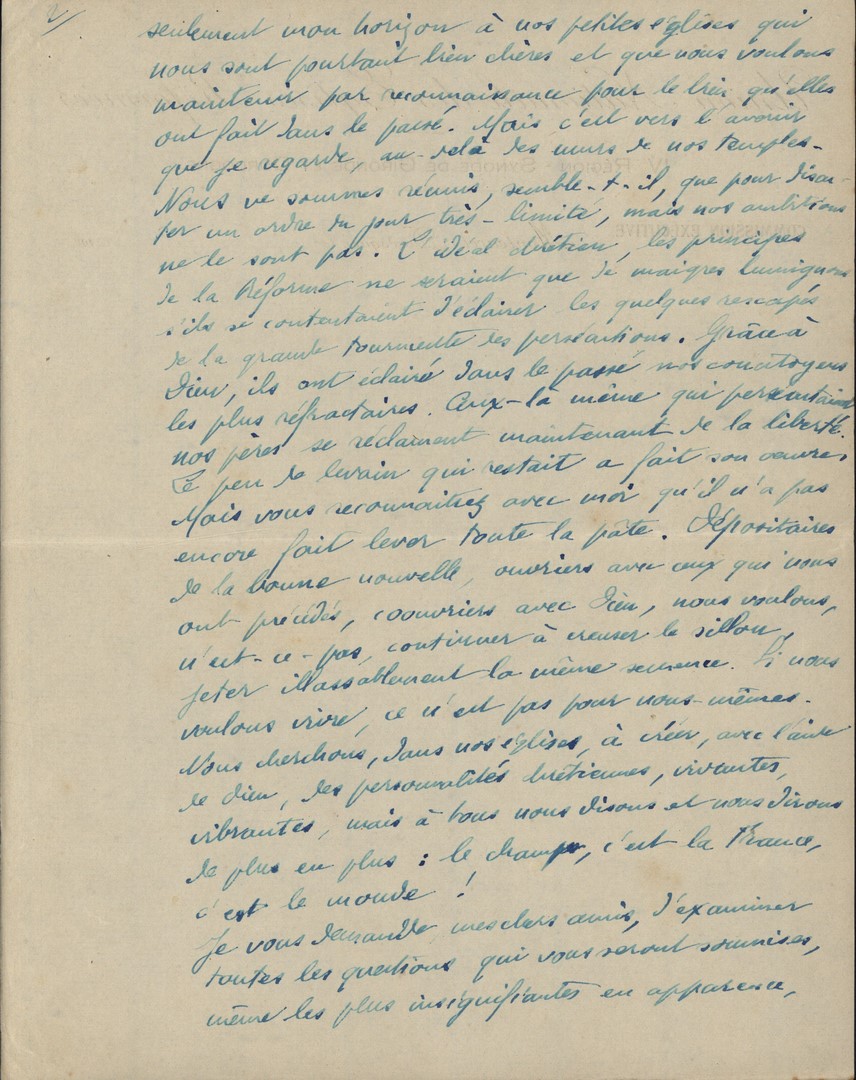 2/
seulement mon horizon à nos petites églises qui
nous sont pourtant bien chères et que nous voulons
maintenir par reconnaissance pour le bien qu'elles
ont fait dans le passé. Mais c'est vers l'avenir
que je regarde, au-delà des murs de nos temples.
Nous ne sommes réunis, semble-t-il, que pour discu-
ter un ordre du jour très-limité, mais nos ambitions
ne le sont pas. L'idéal chrétien, les principes
de la Réforme ne seraient que de maigres lumignons
s'ils se contentaient d'éclairer les quelques rescapés
de la grande tourmente des persécutions. Grâce à
Dieu, ils ont éclairé dans le passé nos concitoyens
les plus réfractaires. Ceux-là même qui persécutaient
nos pères se réclament maintenant de la liberté.
Le peu de levain qui restait a fait son oeuvre.
Mais vous reconnaitrez avec moi qu'il n'a pas
encore fait lever toute la pâte. Dépositaires
de la bonne nouvelle, ouvriers avec ceux qui nous
ont précédés, coouvriers avec Dieu, nous voulons,
n'est-ce-pas, continuer à creuser le sillon,
jeter illassablement la même semence. Si nous
voulons vivre, ce n'est pas pour nous-mêmes.
Nous cherchons, dans nos églises, à créer, avec l'aide
de Dieu, des personnalités chrétiennes, vivantes,
vibrantes, mais à tous nous disons et nous dirons
de plus en plus : le champ, c'est la France,
c'est le monde !
Je vous demande, mes chers amis, d'examiner
toutes les questions qui vous seront soumises,
même les plus insignifiantes en apparence,